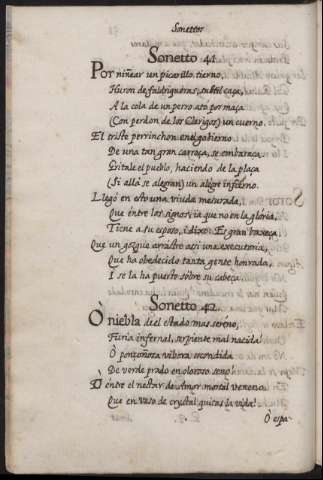 Sonettos
Sonetto 41
Por niñear un picarillo tierno,
Huron de faldriqueras, subtil caça,
A la cola de un perro ató por maça
(Con perdon de los Clerigos) un cuerno.
El triste perrinchon en el gobierno
De una tan gran carroça, se embaraça
Gritale el pueblo, haciendo de la plaça
(Si allà se alegran) un alegre infierno.
Llegó en esto una viuda mesurada,
Que entre los signos, ia que no en la gloria,
Tiene a su esposo, i dixo: Es gran baxeça
Que un gozque arrastre assi una executoria,
Que ha obedecido tanta gente honrada,
I se la ha puesto sobre su cabeça.
Sonetto 42
Ò niebla del estado mas sereno,
Furia infernal, serpiente mal nacida!
Ò ponçoñosa vibora escondida
De verde prado en oloroso seno!
Ò entre el nectar de Amor mortal veneno,
Que en vaso de crystal quitas la vida!
Ò espa-